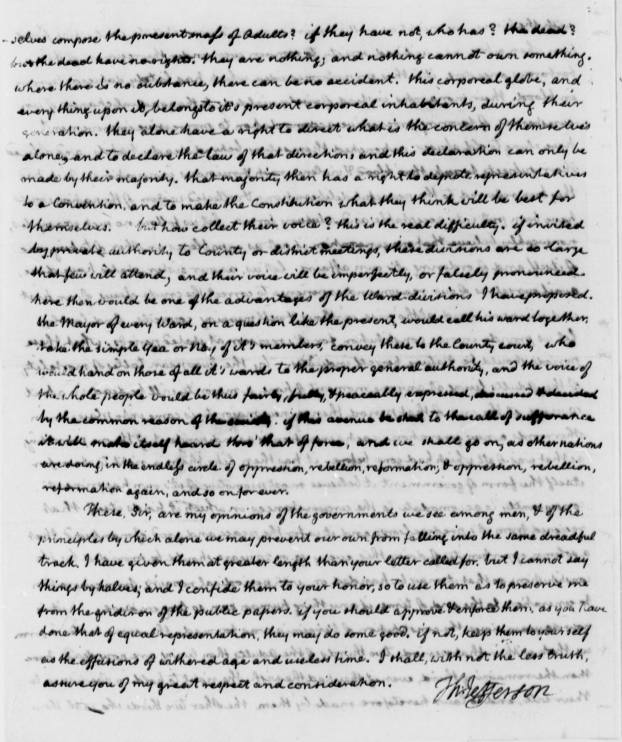 -selves compose the present mass of adults? if they have not, who has? the dead?
but the dead have no rights. they are nothing; and nothing cannot own something.
where there is no substance, there can be no accident. this corporeal globe, and
every thing upon it, belongs to it's present corporeal inhabitants, during their
generation. they alone have a right to direct what is the concern of themselves
alone, and to declare the law of that direction: and this declaration can only be
made by their majority. that majority then has a right to depute representatives
to a Convention, and to make the Constitution what they think will be best for
themselves. but how collect their voice? this is the real difficulty. if invited
by private authority to County or district meetings, these divisions are so large
that few will attend; and their voice will be imperfectly, or falsely pronounced.
here then would be one of the advantages of the Ward divisions I have proposed.
the Mayor of every Ward, on a question like the present, would call his ward together,
take the simple Yea or Nay of it's members, convey these to the County court, who
would hand on those of all it's wards to the proper general authority, and the voice of
the whole people would be thus fairly, fully, & peaceably expressed, discussed & decided
by the common reason of the society. if this avenue be shut to the call of sufferance
it will make itself heard thro' that of force, and we shall go on, as other nations
are doing, in the endless circle of oppression, rebellion, reformation; & oppression, rebellion,
reformation again, and so on for ever.
These, Sir, are my opinions of the governments we see among men, & of the
principles by which alone we may prevent our own from falling into the same dreadful
track. I have given them at greater length than your letter called for. but I cannot say
things by halves; and I confide them to your honor, so to use them as to preserve me
from the gridiron of the public papers. if you should approve & enforce them, as you have
done that of equal representation, they may do some good. if not, keep them to yourself
as the effusions of withered age and useless time. I shall, with not the less truth,
assure you of my great respect and consideration.
Th: Jefferson